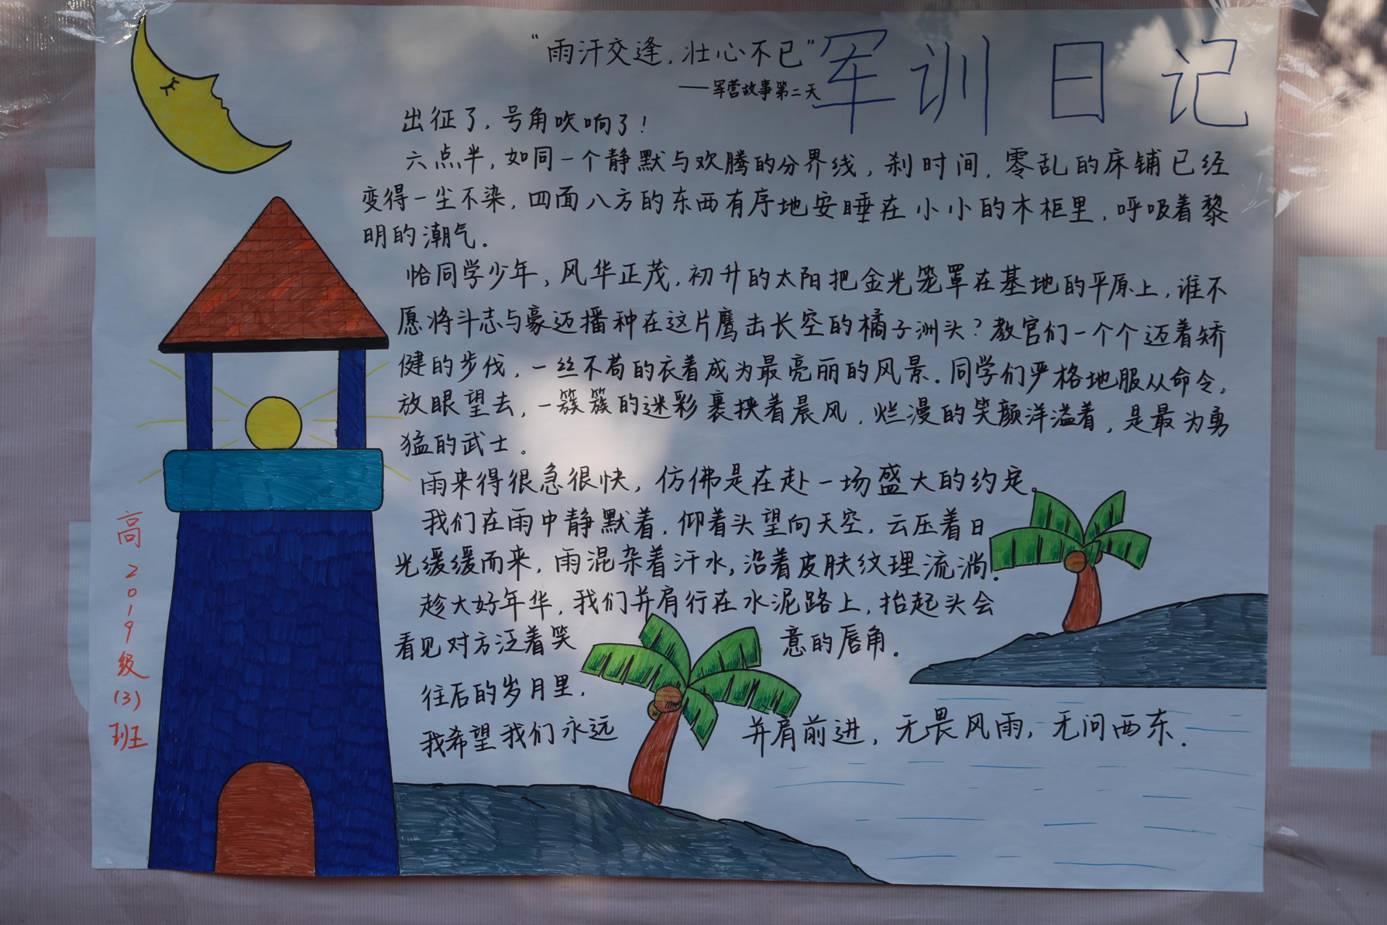 “雨汗交逢，壮心不已”
——军营故事第二天
军训日记
出征了，号角吹响了！
六点半，如同一个静默与欢腾的分界线，刹时间，零乱的床铺已经
变得一尘不染，四面八方的东西有序地安睡在小小的木柜里，呼吸着黎
明的潮气。
恰同学少年，风华正茂，初升的太阳把金光笼罩在基地的平原上，谁不
愿将斗志与豪迈播种在这片鹰击长空的橘子洲头？教官们一个个迈着矫
健的步伐，一丝不苟的衣着成为最亮丽的风景。同学们严格地服从命令，
放眼望去，一簇簇的迷彩裹挟着晨风，烂漫的笑颜洋溢着，是最为勇
猛的武士。
雨来得很急很快，仿佛是在赴一场盛大的约定。
我们在雨中静默着，仰着头望向天空，云压着日
光缓缓而来，雨混杂着汗水，沿着皮肤纹理流淌。
趁大好年华，我们并肩行在水泥路上，抬起头会
看见对方泛着笑意的唇角。
往后的岁月里，
我希望我们永远并肩前进，无畏风雨，无问西东。
高2019级(3)班